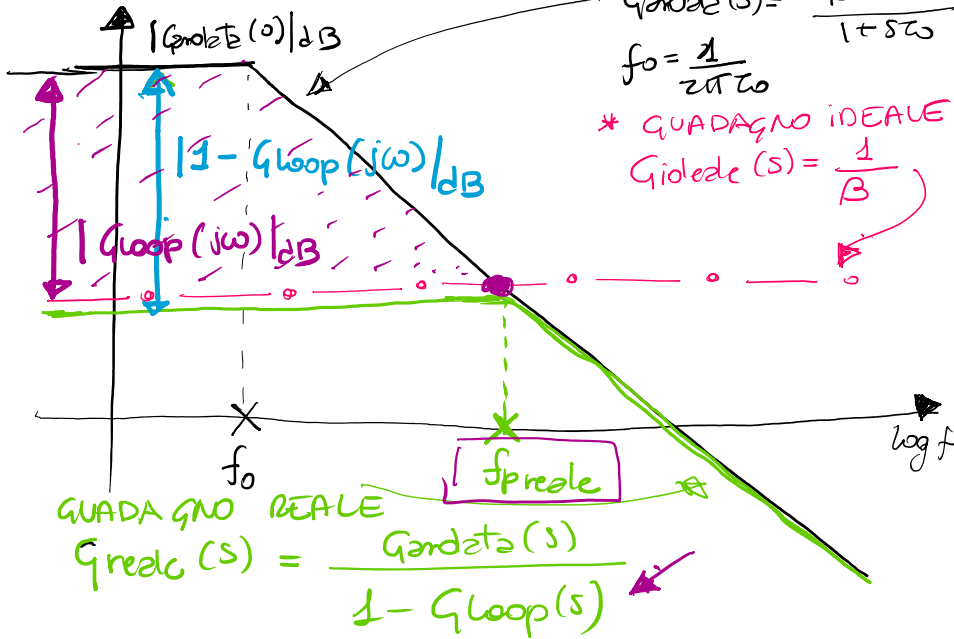 |Gandata(0)|dB
Gandata(s)=
1+sτo
fo=1/2πτo
* GUADAGNO iDEALE
Gideale(s)=1/β
|1-Gloop(jω)|dB
|Gloop(jω)|dB
log f
fo
fpreale
GUADAGNO REALE
Greale(s) = Gandata(s)
1-Gloop(s)